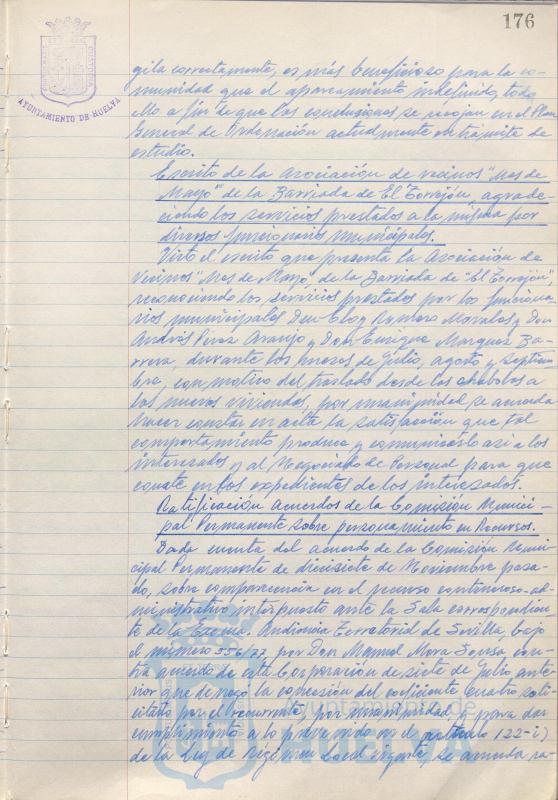 176
AYUNTAMIENTO DE HUELVA
gila correctamente, es más beneficioso para la co-
munidad que el aparcamiento indefinido, todo
ello a fin de que las conclusiones se recojan en el Plan
General de Ordenación actualmente en tramite de
estudio.
Escrito de la Asociación de vecinos "Mes de
Mayo" de la Barriada de El Torrejón, agrade-
ciendo los servicios prestados a la misma por
diversos funcionarios municipales.
Visto el escrito que presenta la Asociación de
Vecinos "Mes de Mayo, de la Barriada de "El Torrejón"
reconociendo los servicios prestados por los funciona-
rios municipales Don Eloy Romero Morales y Don
Andrés Pérez Araujo y Don Enrique Marquez Ba-
rrera, durante los meses de Julio, agosto y septiem-
bre, con motivo del traslado desde las chabolas a
las nuevas viviendas, por unanimidad se acuerda
hacer constar en acta la satisfacción que tal
comportamiento produce y comunicarlo asi a los
interesados y al Negociado de Personal para que
conste en los expedientes de los interesados.
Ratificación acuerdos de la Comisión Munici-
pal Permanente sobre personamiento en Recursos.
Dada cuenta del acuerdo de la Comisión Muni-
cipal Permanente de diecisiete de Noviembre pasa-
do, sobre comparecencia en el recurso contencioso-ad-
ministrativo interpuesto ante la Sala correspondien-
te de la Excma. Audiencia Territorial de Sevilla, bajo
el número 556/77, por Don Manuel Mora Sousa con-
tra acuerdo de esta Corporación de siete de Julio ante-
rior que denegó la concesión del coeficiente cuatro soli-
citado por el recurrente, por unanimidad y para dar
cumplimiento a lo prevenido en el artículo 122-i)
de la Ley de Régimen Local vigente, se acuerda ra-
Ayuntamiento de
HUELVA